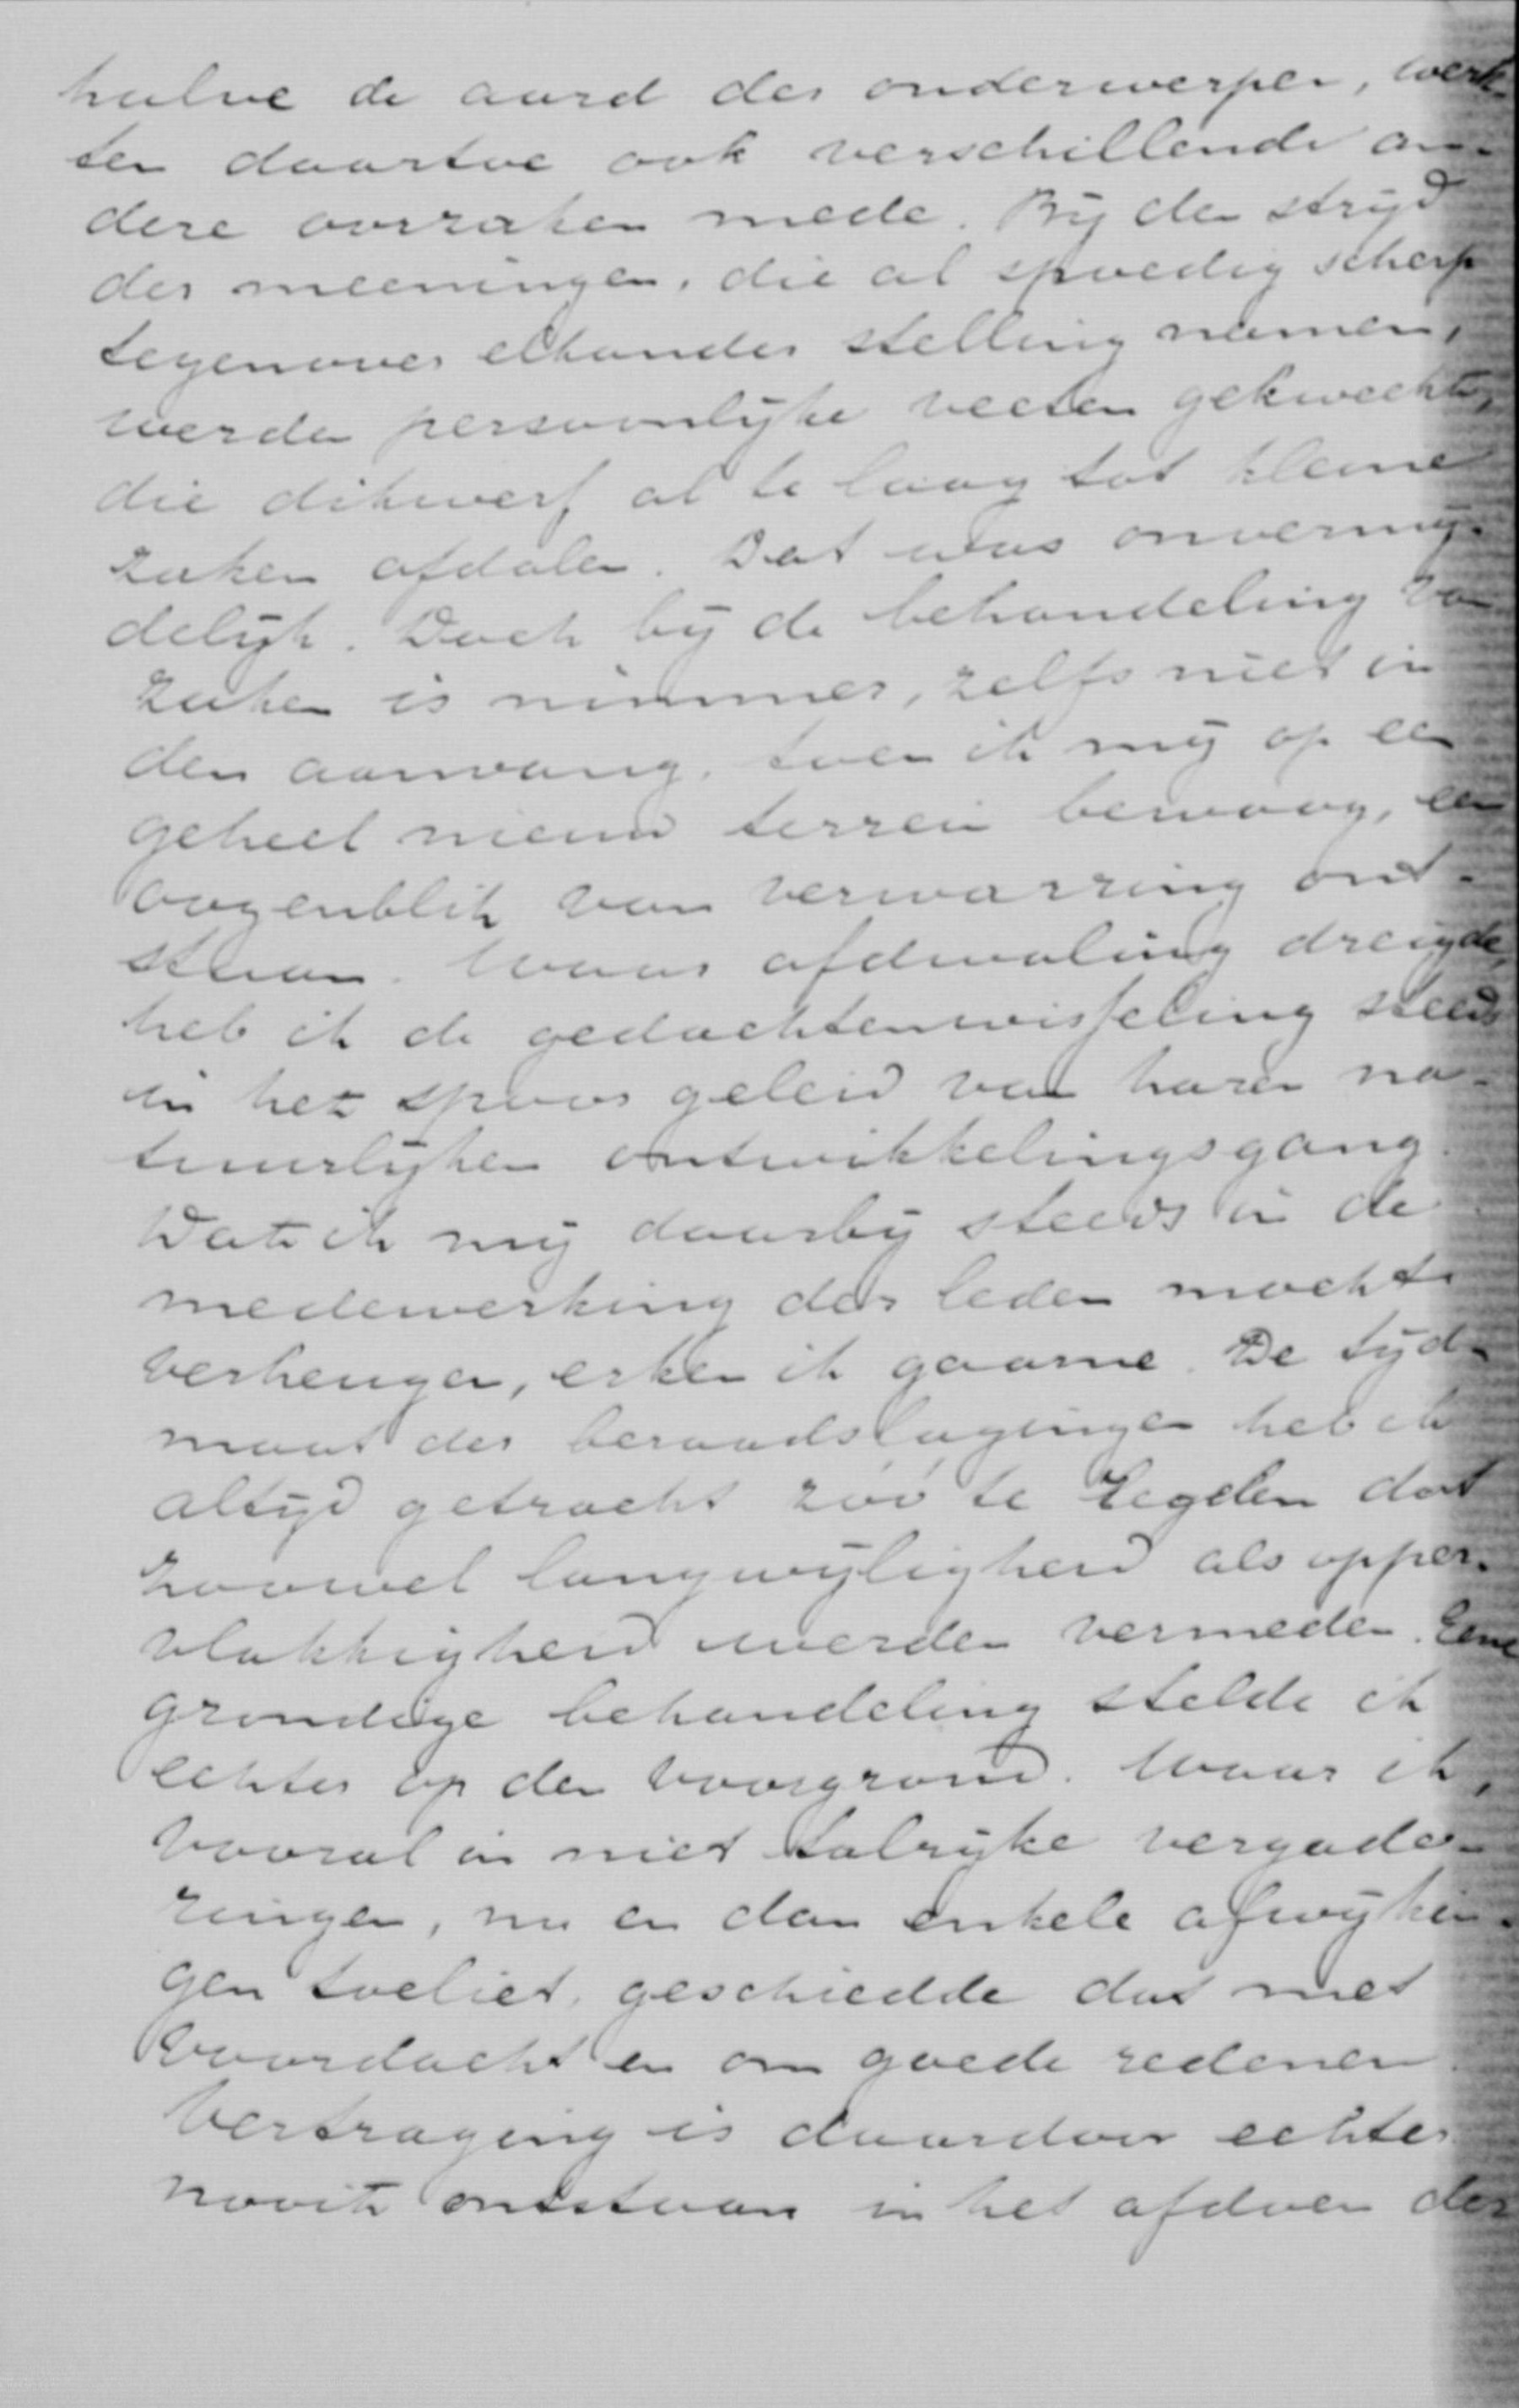 halve de aard der onderwerpen, werk-
ten daartoe ook verschillende an-
dere oorzaken mede. Bij den strijd
der meeningen, die al spoedig scherp
tegenover elkander stelling namen,
werden persoonlijke veeten gekweekt,
die dikwerf al te laag tot kleine
zaken afdalen. Dat was onvermij-
delijk. Doch bij de behandeling van
zaken is nimmer, zelfs niet in
den aanvang, toen ik mij op een
geheel nieuw terrein bewoog, een
oogenblik van verwarring ont-
staan. Waar afdwaling dreigde,
heb ik de gedachtenwisseling steeds
in het spoor geleid van haren na-
tuurlijken ontwikkelingsgang.
Dat ik mij daarbij steeds in de
medewerking der leden mocht
verheugen, erken ik gaarne. De tijd-
maat der beraadslagingen heb ik
altijd getracht zóó te regelen dat
zoowel langwijligheid als opper-
vlakkigheid werden vermeden. Eene
grondige behandeling stelde ik
echter op den voorgrond. Waar ik,
vooral in niet talrijke vergade-
ringen, nu en dan enkele afwijkin-
gen toeliet, geschiedde dat met
voordacht en om goede redenen.
Vertraging is daardoor echter
nooit ontstaan in het afdoen der